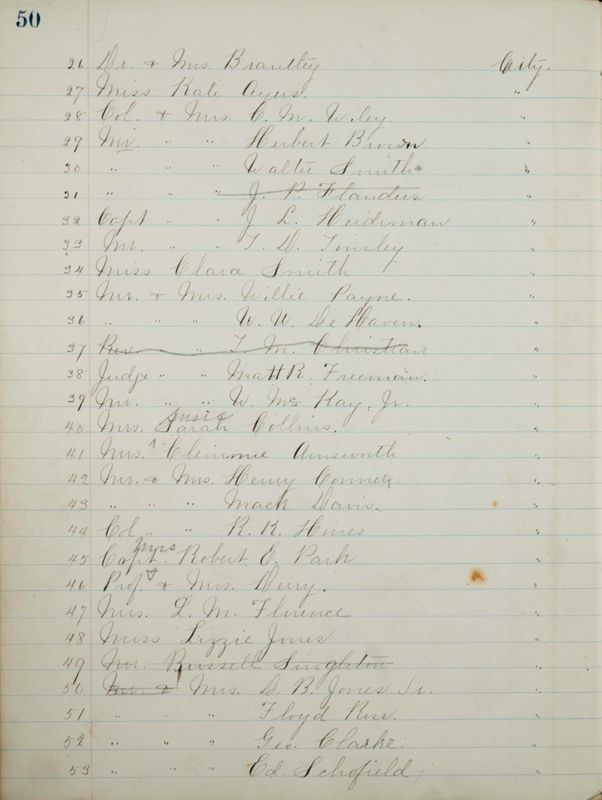 50
26 Dr. & Mrs Brantley City.
27 Miss Kate Ayers. "
28 Col. & Mrs. C. M. Wiley "
29 Mr. " " Herbert Brown "
30 " " " Walter Smith "
31 " " " J. P. Flanders "
32 Capt " " J. L. Hardeman "
33 Mr. " " T. D. Tinsley "
34 Miss Clara Smith "
35 Mr. & Mrs. Willie Payne. "
36 " " " W. W. De Haven. "
37 Rev. " T. M. Christian "
38 Judge " " Matt R. Freeman. "
39 Mr. " " W. Mc Kay, Jr. "
Susie
40 Mrs. Sarah Collins. "
41 Mrs. Clemmie Ainsworth "
42 Mr. & Mrs. Henry "
43 " " " Mack Davis. "
44 Col " " R. K. Hines "
Mrs
45 Capt. Robert E. Park "
46 Prof. & Mrs. Derry. "
47 Mrs. L. M. Florence "
48 Miss Lizzie Jones "
49 Mr. Russell Singleton "
50 Mr. & Mrs. D. B. Jones Sr. "
51 " " " Floyd Ross. "
52 " " " Geo. Clarke. "
53 " " " Ed. Schofield. "